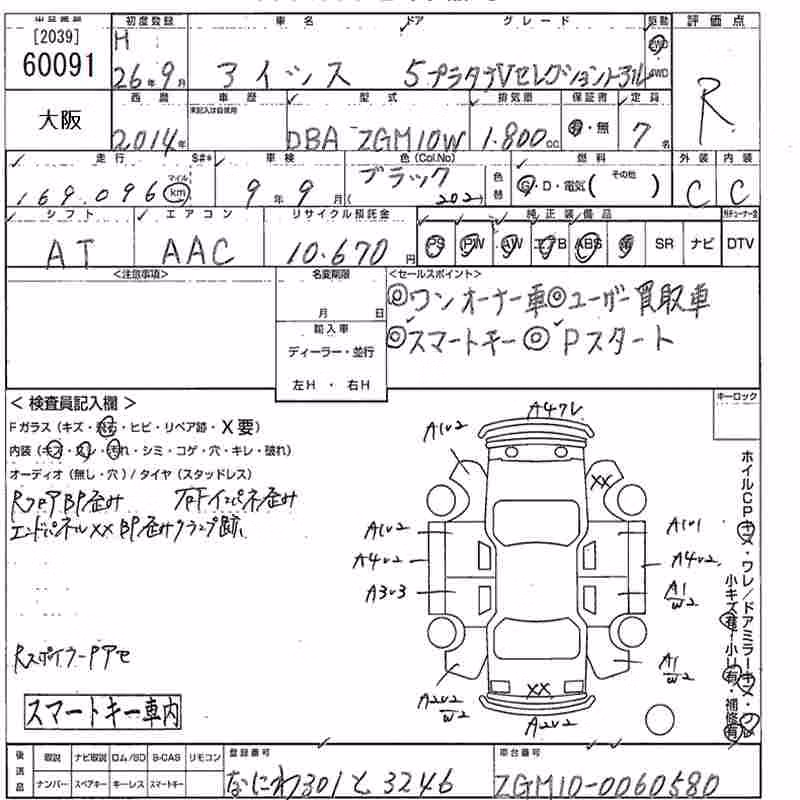 出品番号 初度登録 車名 ドア グレード 駆動 評価点
[2039] H 2WD
60091 26年9月 アイシス 5 プラタナVセレクショントヨタ 4WD R
大阪 西暦 車歴 型式 排気量 保証書 定員
未記入は自家用
2014年 DBA ZGM10W 1.800cc 有・無 7名
走行 S#* 車検 色(Col.No) 色替 燃料 外装 内装
169.096 マイル km 9年9月 ブラック (202) G・D・電気( その他 ) C C
シフト エアコン リサイクル預託金 純正装備品
AT AAC 10.670円 PS PW AW エアB ABS 革 SR ナビ DTV
<注意事項> 名変期限 <セールスポイント>
月 日 ◎ワンオーナー車◎ユーザー買取車
輸入車 ◎スマートキー◎Pスタート
ディーラー・並行
左H・右H
キーロック
<検査員記入欄>
Fガラス(キズ・飛石・ヒビ・リペア跡・X要)
内装(キズ・スレ・汚れ・シミ・コゲ・穴・キレ・破れ)
オーディオ(無し・穴)/タイヤ(スタッドレス)
RフロアBP歪み 右Fインパネ歪み
エンドパネルXX BP歪みクランプ跡
Rスポイラー Pアセ
スマートキー車内
A47V
A1V2 XX
A1V2 A1V1
A4V2 A4V2
A3V3 A1 W2
A2V2 W2 XX A1 W2
A2V2
ホイルCPキズ・ワレ/ドアミラーキズ・ワレ
小キズ有・小凹有・補修有
後送品 取説 ナビ取説 ロム/SD B-CAS リモコン 登録番号 車台番号
ナンバー スペアキー キーレス スマートキー なにわ301と3246 ZGM10-0060580